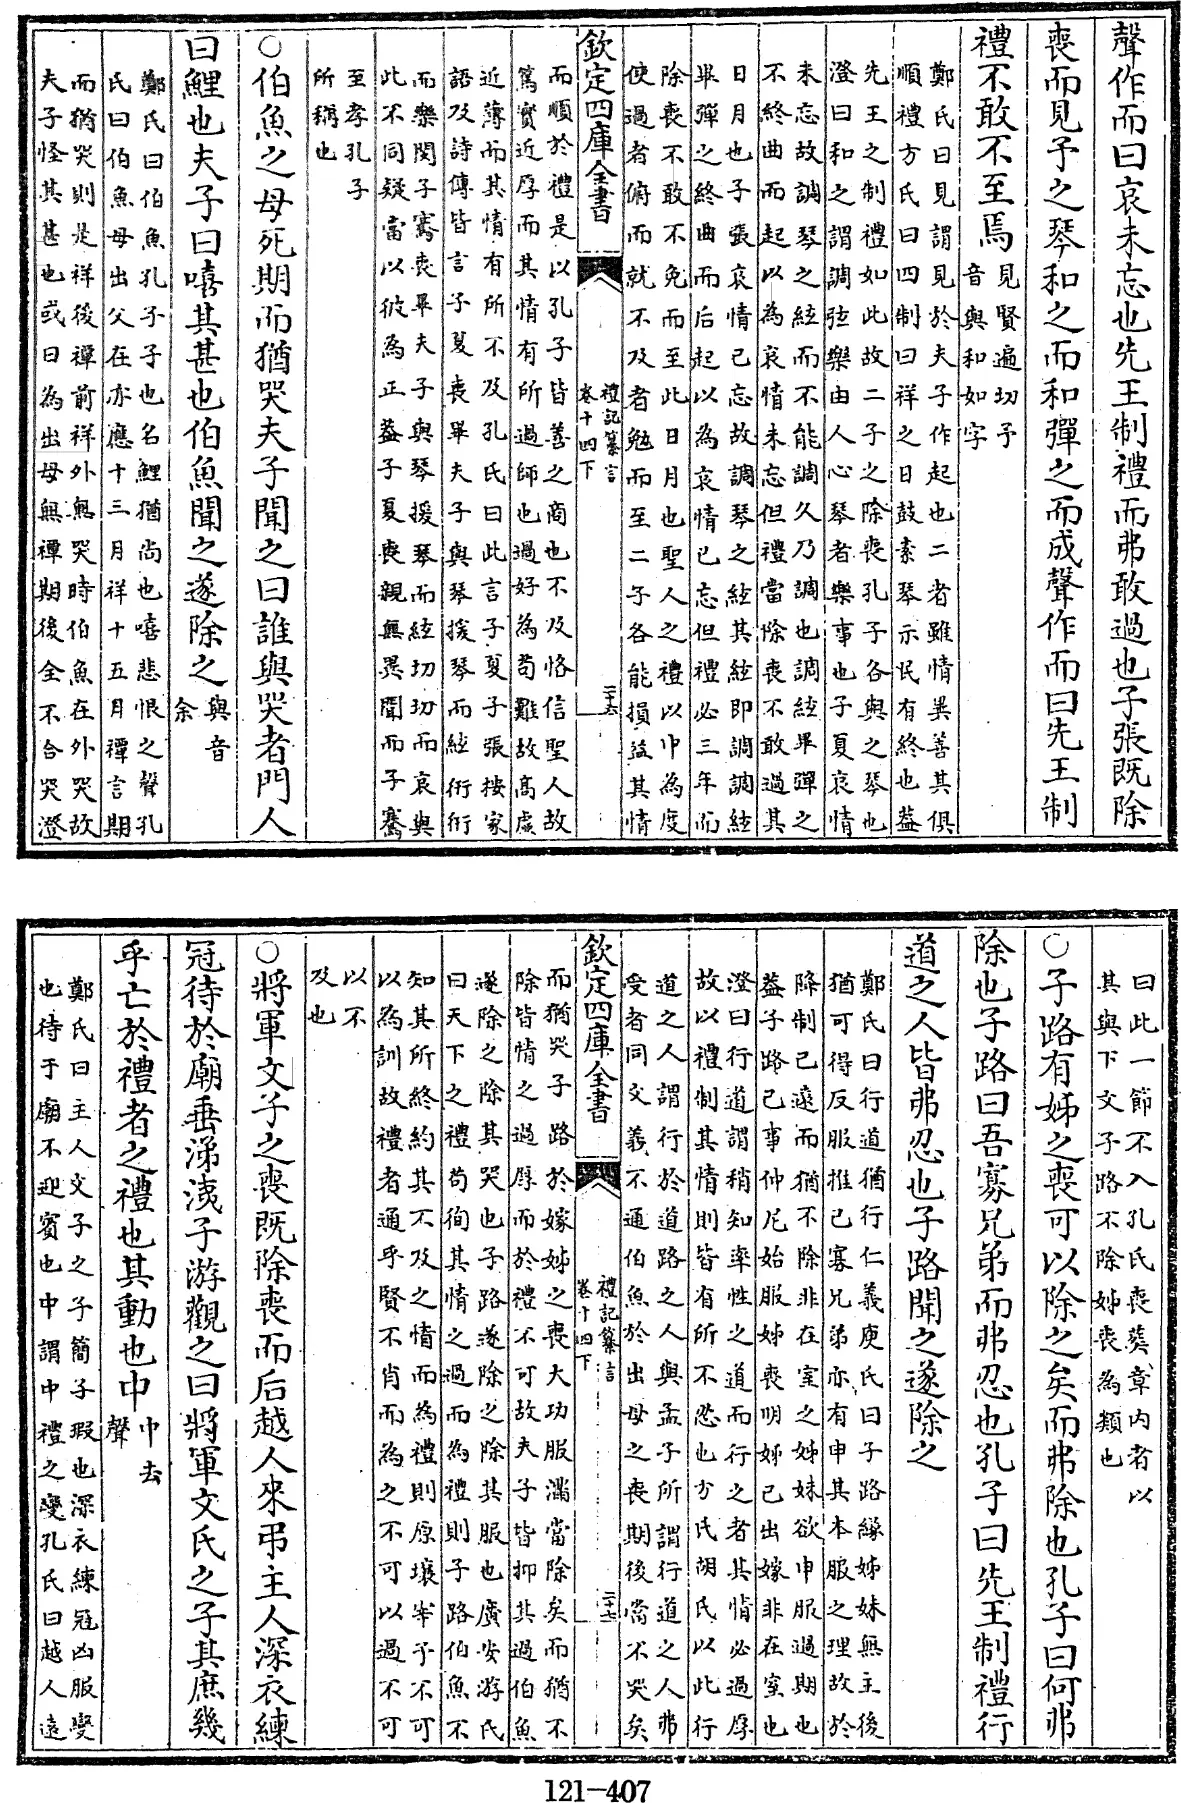 聲作而曰哀未忘也先王制禮而弗敢過也子張既除
喪而見予之琴和之而和彈之而成聲作而曰先王制
禮不敢不至焉
見賢遍切予
音與和如字
鄭氏曰見謂見於夫子作起也二者雖情異善其俱
順禮方氏曰四制曰祥之日鼓素琴示民有終也蓋
先王之制禮如此故二子之除喪孔子各與之琴也
澄曰和之謂調弦樂由人心琴者樂事也子夏哀情
未忘故調琴之絃而不能調久乃調也調絃畢彈之
不終曲而起以為哀情未忘但禮當除喪不敢過其
日月也子張哀情已忘故調琴之絃其絃即調調絃
畢彈之終曲而后起以為哀情已忘但禮必三年而
除喪不敢不免而至此日月也聖人之禮以中為度
使過者俯而就不及者勉而至二子各能損益其情
欽定四庫全書
禮記纂言
卷十四下
二十六
而順於禮是以孔子皆善之商也不及恪信聖人故
篤實近厚而其情有所過師也過好為苟難故高虛
近薄而其情有所不及孔氏曰此言子夏子張按家
語及詩傳皆言子夏喪畢夫子與琴援琴而絃衎衎
而樂閔子騫喪畢夫子與琴援琴而絃切切而哀與
此不同疑當以彼為正蓋子夏喪親無異聞而子騫
至孝孔子
所稱也
○伯魚之母死期而猶哭夫子聞之曰誰與哭者門人
曰鯉也夫子曰嘻其甚也伯魚聞之遂除之
與音
余
鄭氏曰伯魚孔子子也名鯉猶尚也嘻悲恨之聲孔
氏曰伯魚母出父在亦應十三月祥十五月禫言期
而猶哭則是祥後禫前祥外無哭時伯魚在外哭故
夫子怪其甚也或曰為出母無禫期後全不合哭澄
曰此一節不入孔氏喪葬章內者以
其與下文子路不除姊喪為類也
○子路有姊之喪可以除之矣而弗除也孔子曰何弗
除也子路曰吾寡兄弟而弗忍也孔子曰先王制禮行
道之人皆弗忍也子路聞之遂除之
鄭氏曰行道猶行仁義庾氏曰子路緣姊妹無主後
猶可得反服推己寡兄弟亦有申其本服之理故於
降制已遠而猶不除非在室之姊妹欲申服過期也
蓋子路已事仲尼始服姊喪明姊已出嫁非在室也
澄曰行道謂稍知率性之道而行之者其情必過厚
故以禮制其情則皆有所不忍也方氏胡氏以此行
道之人謂行於道路之人與孟子所謂行道之人弗
受者同文義不通伯魚於出母之喪期後當不哭矣
欽定四庫全書
禮記纂言
卷十四下
二十七
而猶哭子路於嫁姊之喪大功服滿當除矣而猶不
除皆情之過厚而於禮不可故夫子皆抑其過伯魚
遂除之除其哭也子路遂除之除其服也廣安游氏
曰天下之禮苟徇其情之過而為禮則子路伯魚不
知其所終約其不及之情而為禮則原壤宰予不可
以為訓故禮者通乎賢不肖而為之不可以過不可
以不
及也
○將軍文子之喪既除喪而后越人來弔主人深衣練
冠待於廟垂涕洟子游觀之曰將軍文氏之子其庶幾
乎亡於禮者之禮也其動也中
中去
聲
鄭氏曰主人文子之子簡子瑕也深衣練冠凶服變
也待于廟不迎賓也中謂中禮之變孔氏曰越人遠
121-407